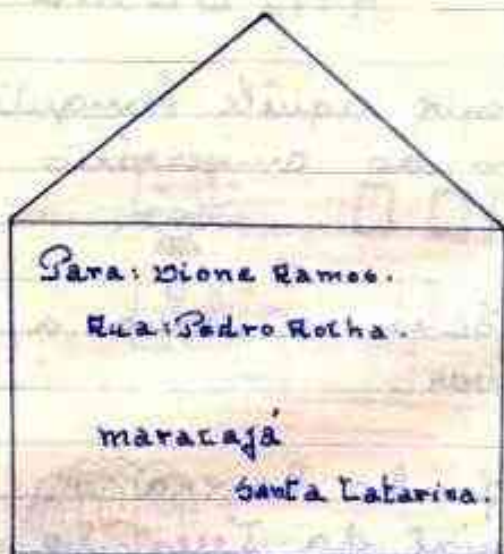 Para: Dione Ramos.
Rua: Pedro Rocha.
maracajá
Santa Catarina.